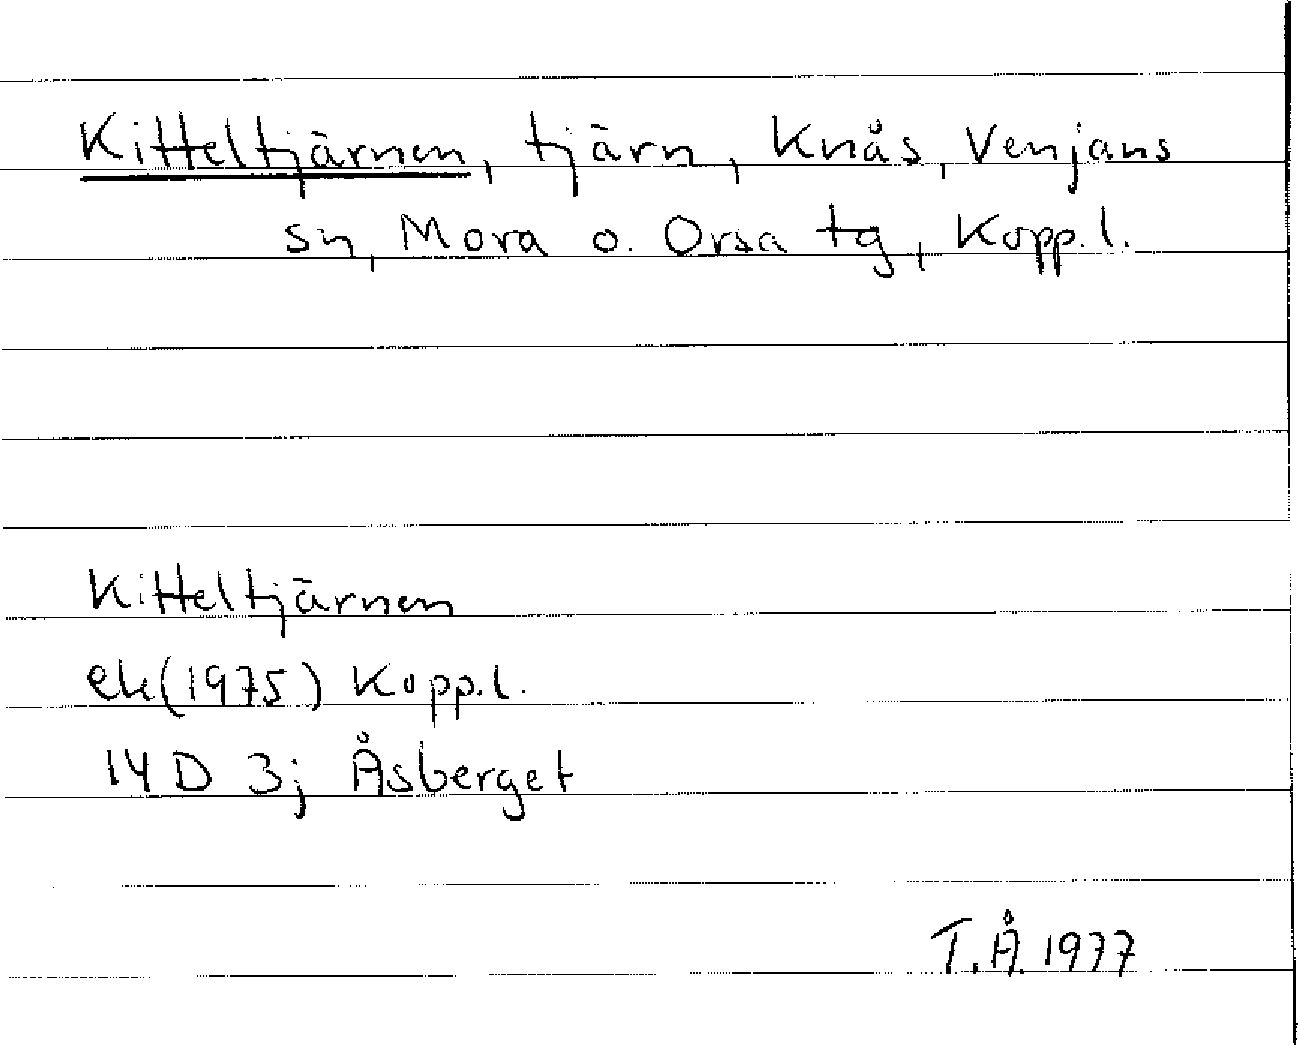 Kitteltjärnen, tjärn, Knås, Venjans
sn, Mora o. Orsa tg, Kopp.l.
Kitteltjärnen
ek(1975) Kopp.l.
14D 3j Åsberget
T.Å. 1977